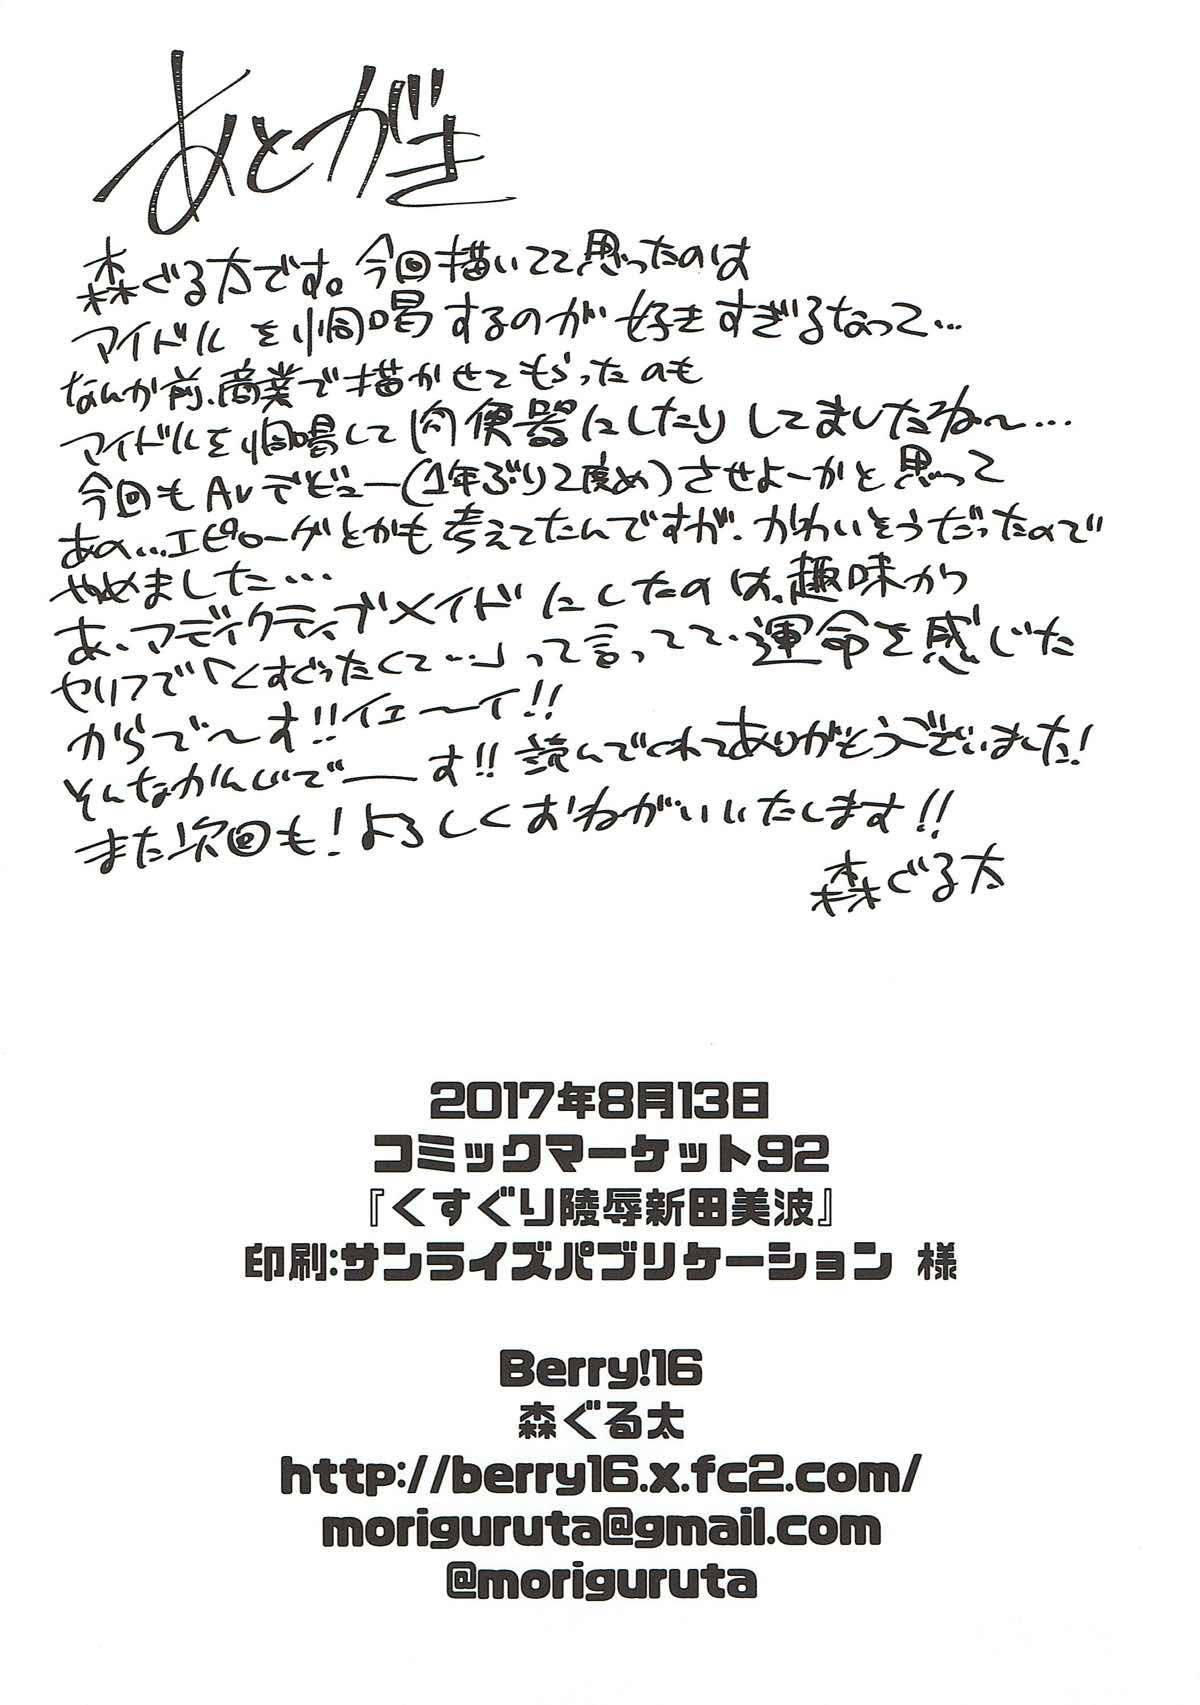 あとがき
森ぐる太です。今回描いてて思ったのは
アイドルを恫喝するのが好きすぎるなって…
なんか前、商業で描かせてもらったのも
アイドルを恫喝して肉便器にしたりしてましたね〜…
今回もAVデビュー(1年ぶり2度め)させよーかと思って
あの…エピローグとかも考えてたんですが、かわいそうだったので
やめました…
あ、アディクティブメイドにしたのは、趣味から
セリフで「くすぐったくて…」って言ってて、運命を感じた
からで〜す!!イェ〜イ!!
そんなかんじでーす!!読んでくれてありがとうございました!
また次回も!よろしくおねがいいたします!!
森ぐる太
2017年8月13日
コミックマーケット92
『くすぐり陵辱新田美波』
印刷:サンライズパブリケーション 様
Berry!16
森ぐる太
http://berry16.x.fc2.com/
moriguruta@gmail.com
@moriguruta